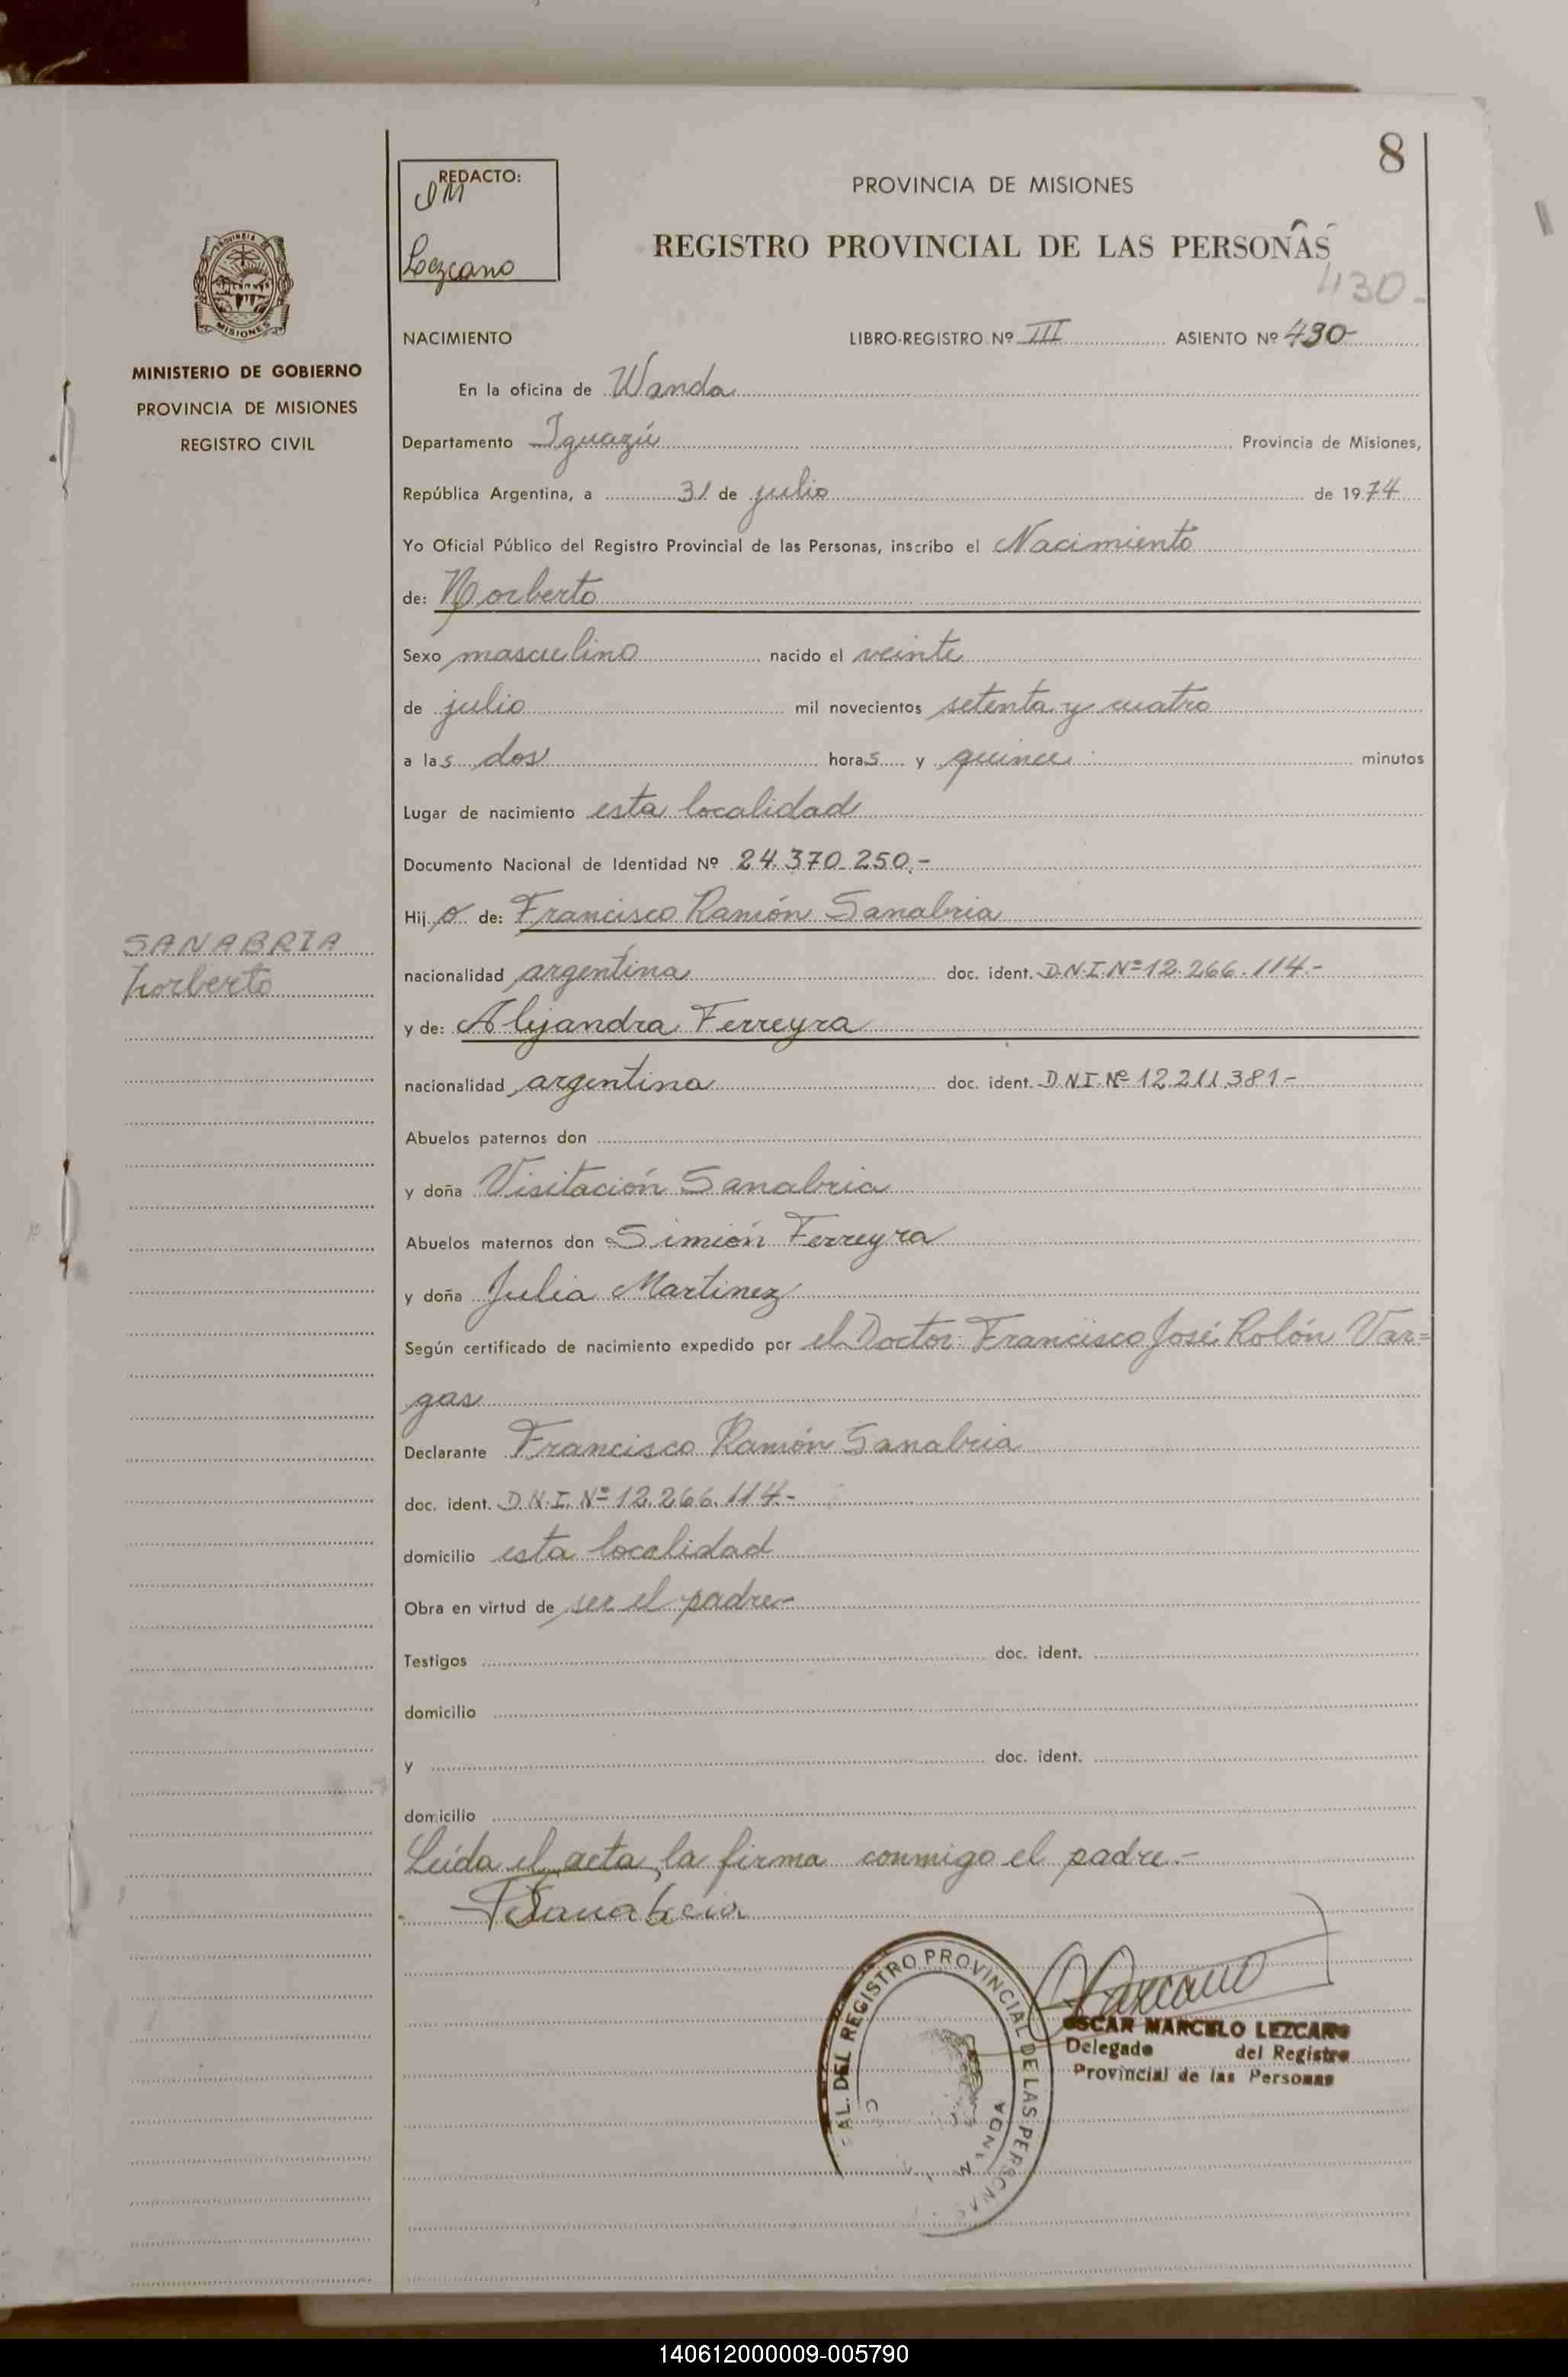 8
REDACTO:
OM
Lezcano
PROVINCIA DE MISIONES
REGISTRO PROVINCIAL DE LAS PERSONAS
430-
PROVINCIA DE
MISIONES
MINISTERIO DE GOBIERNO
PROVINCIA DE MISIONES
REGISTRO CIVIL
NACIMIENTO LIBRO-REGISTRO Nº III ASIENTO Nº 430-
En la oficina de Wanda
Departamento Iguazú Provincia de Misiones,
República Argentina, a 31 de julio de 1974
Yo Oficial Público del Registro Provincial de las Personas, inscribo el Nacimiento
de: Norberto
Sexo masculino nacido el veinte
de julio mil novecientos setenta y cuatro
a las dos horas y quince minutos
Lugar de nacimiento esta localidad
Documento Nacional de Identidad Nº 24.370.250.-
Hijo de: Francisco Ramón Sanabria
SANABRIA
Norberto
nacionalidad argentina doc. ident. D.N.I. Nº 12.266.114.-
y de: Alejandra Ferreyra
nacionalidad argentina doc. ident. D.N.I. Nº 12.211.381-
Abuelos paternos don
y doña Visitación Sanabria
Abuelos maternos don Simión Ferreyra
y doña Julia Martinez
Según certificado de nacimiento expedido por el Doctor: Francisco José Rolón Var=
gas
Declarante Francisco Ramón Sanabria
doc. ident. D.N.I. Nº 12.266.114.-
domicilio esta localidad
Obra en virtud de ser el padre-
Testigos doc. ident.
domicilio
y doc. ident.
domicilio
Leída el acta, la firma conmigo el padre.-
FSanabria
AL. DEL REGISTRO PROVINCIAL DE LAS PERSONAS
WANDA
Lezcano
OSCAR MARCELO LEZCANO
Delegado del Registro
Provincial de las Personas
140612000009-005790